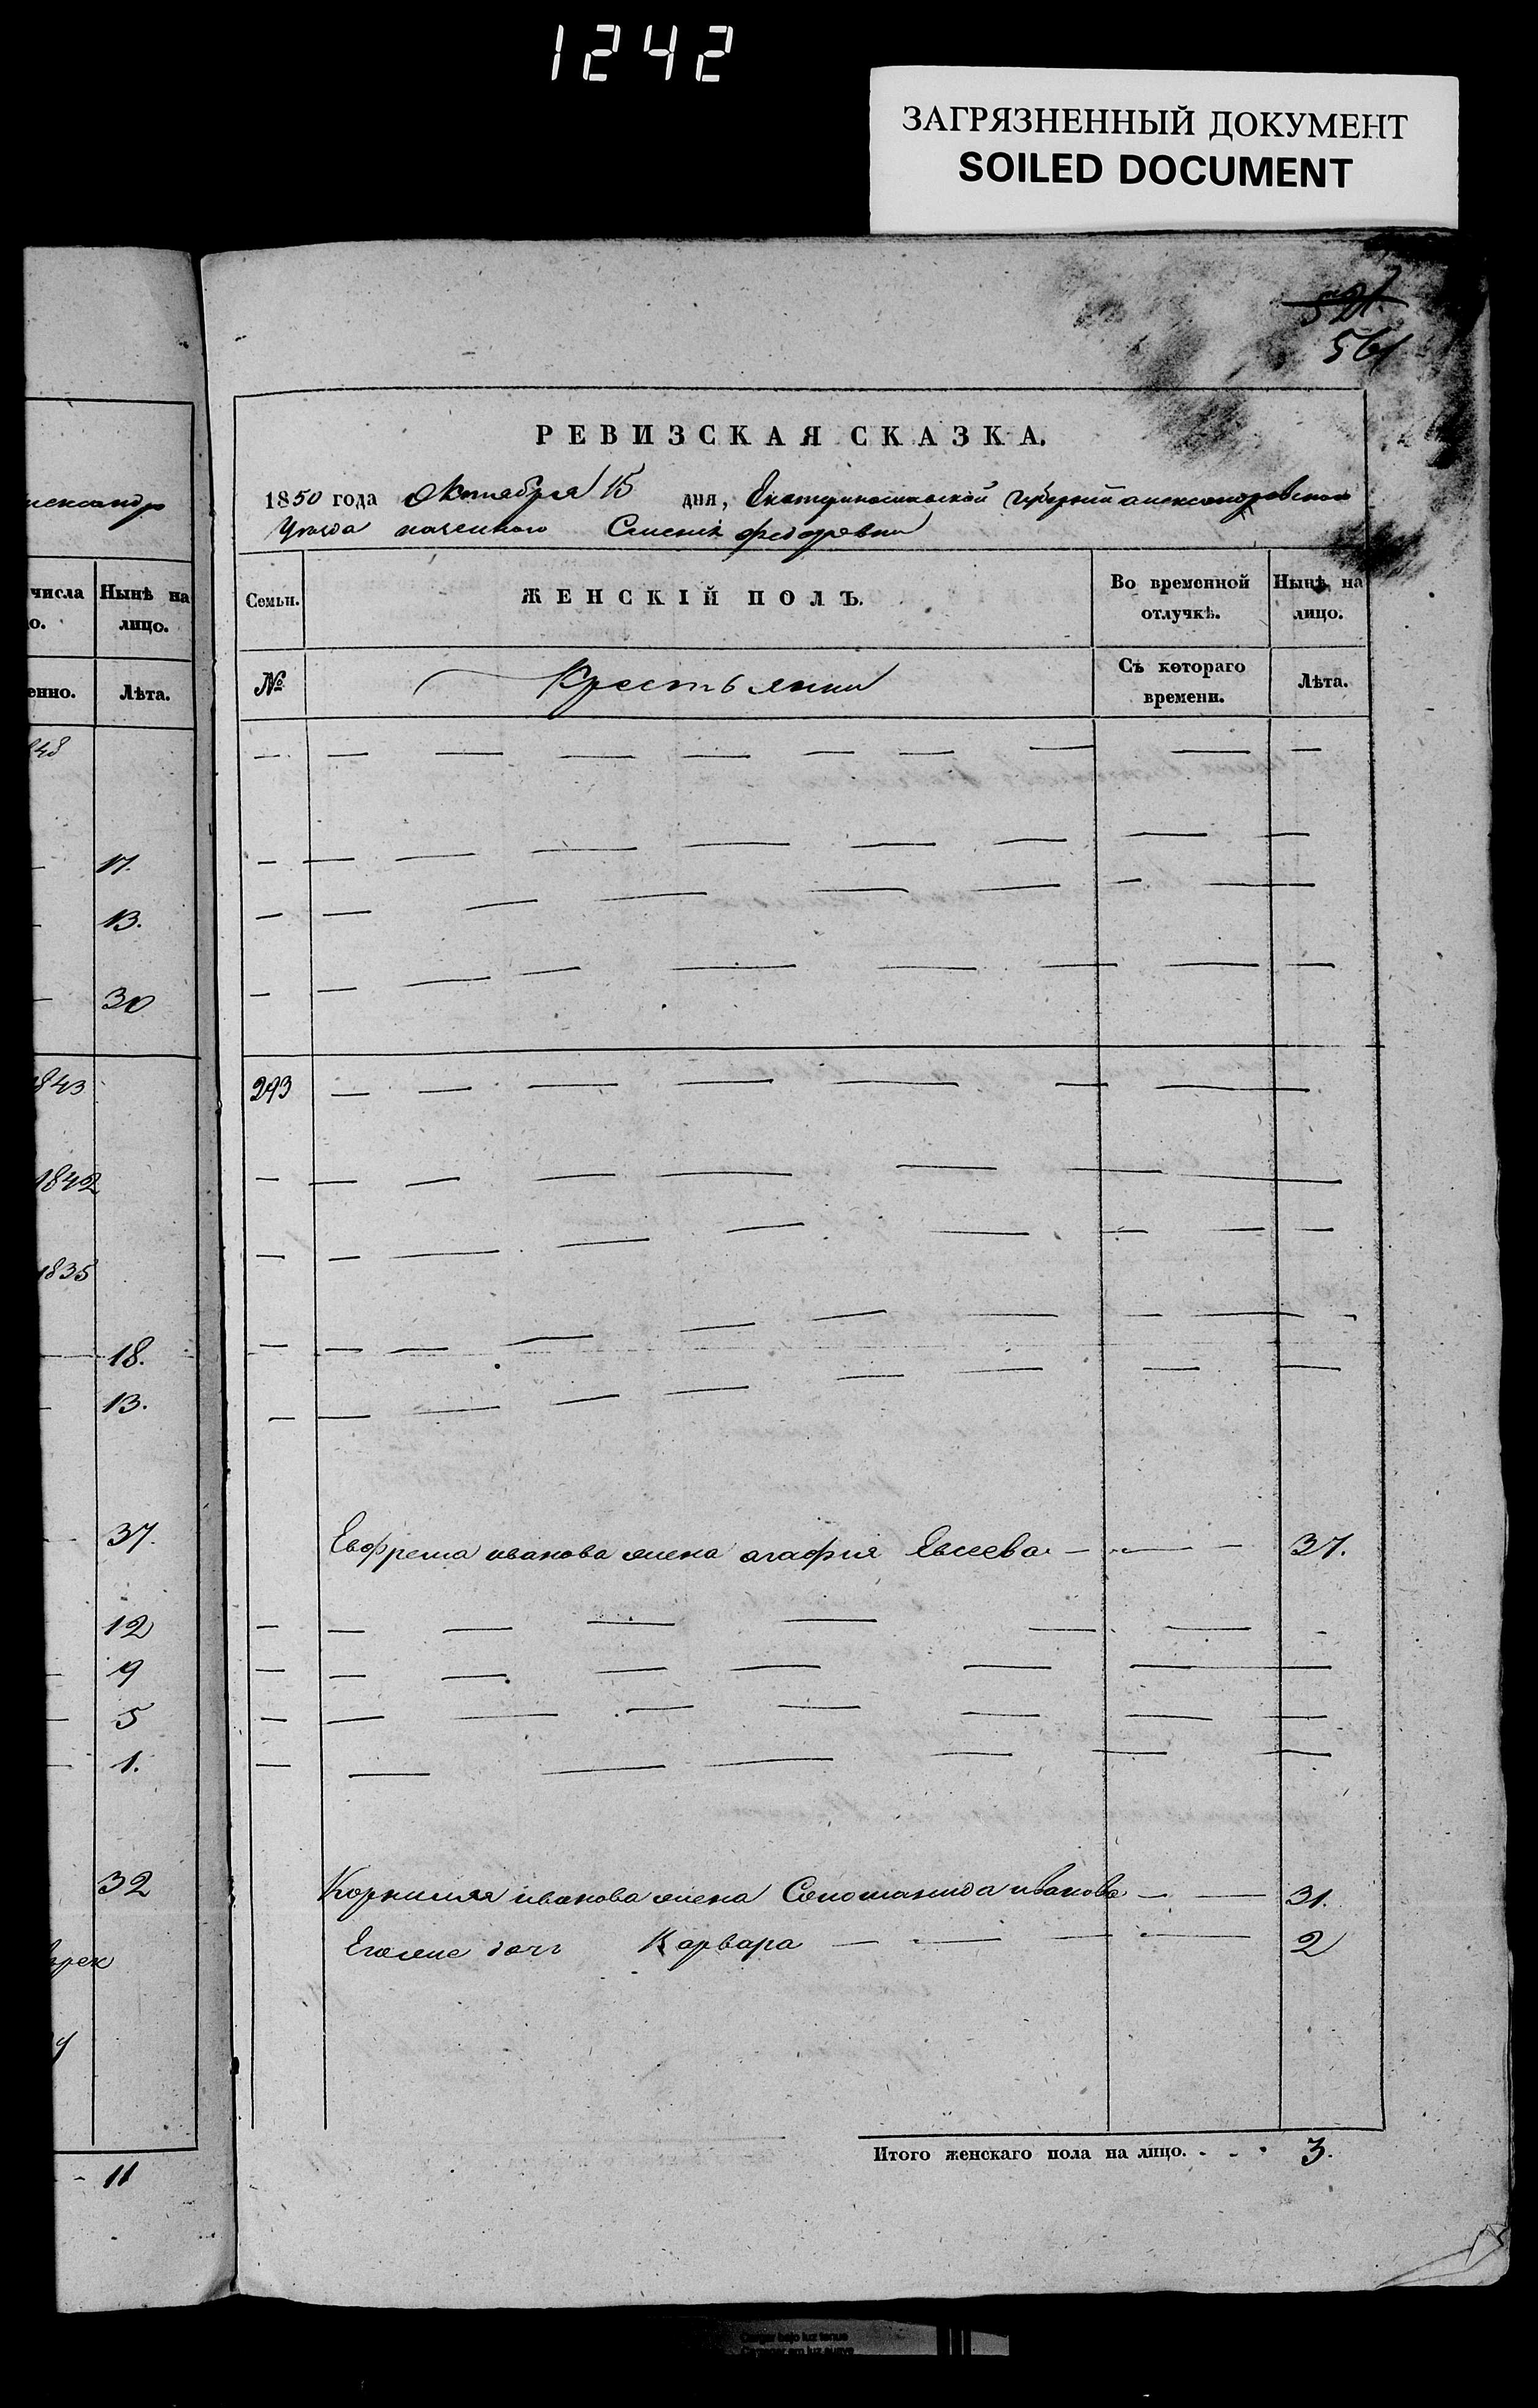 1242
ЗАГРЯЗНЕННЫЙ ДОКУМЕНТ
SOILED DOCUMENT
521.
561
РЕВИЗСКАЯ СКАЗКА.
1850 года Октября 15 дня, Екатеринославской Губерніи александровскаго
Уѣзда казеннаго Селенія федоровки
Семьи. ЖЕНСКІЙ ПОЛЪ. Во временной отлучкѣ. Нынѣ на лицо.
№ Крестьянки Съ котораго времени. Лѣта.
293
Евфрема иванова жена агафия Евсеева 37.
Корнилия иванова жена Соломанида иванова 31.
Егоже дочь Варвара 2
Итого женскаго пола на лицо. 3.
александр
числа Нынѣ на
о. лицо.
енно. Лѣта.
848
17.
13.
30
1843
1842
1835
18.
13.
37.
12
9
5
1.
32
11